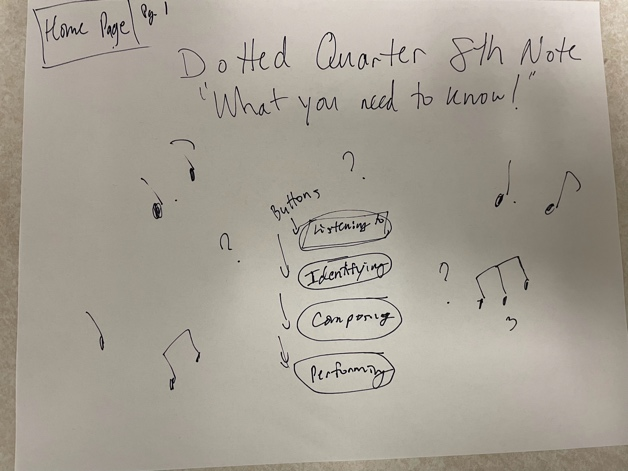 Home Page
Pg. 1
Dotted Quarter 8th Note
"What you need to know!"
?
Buttons
Listening to
?
Identifying
?
Composing
3
Performing